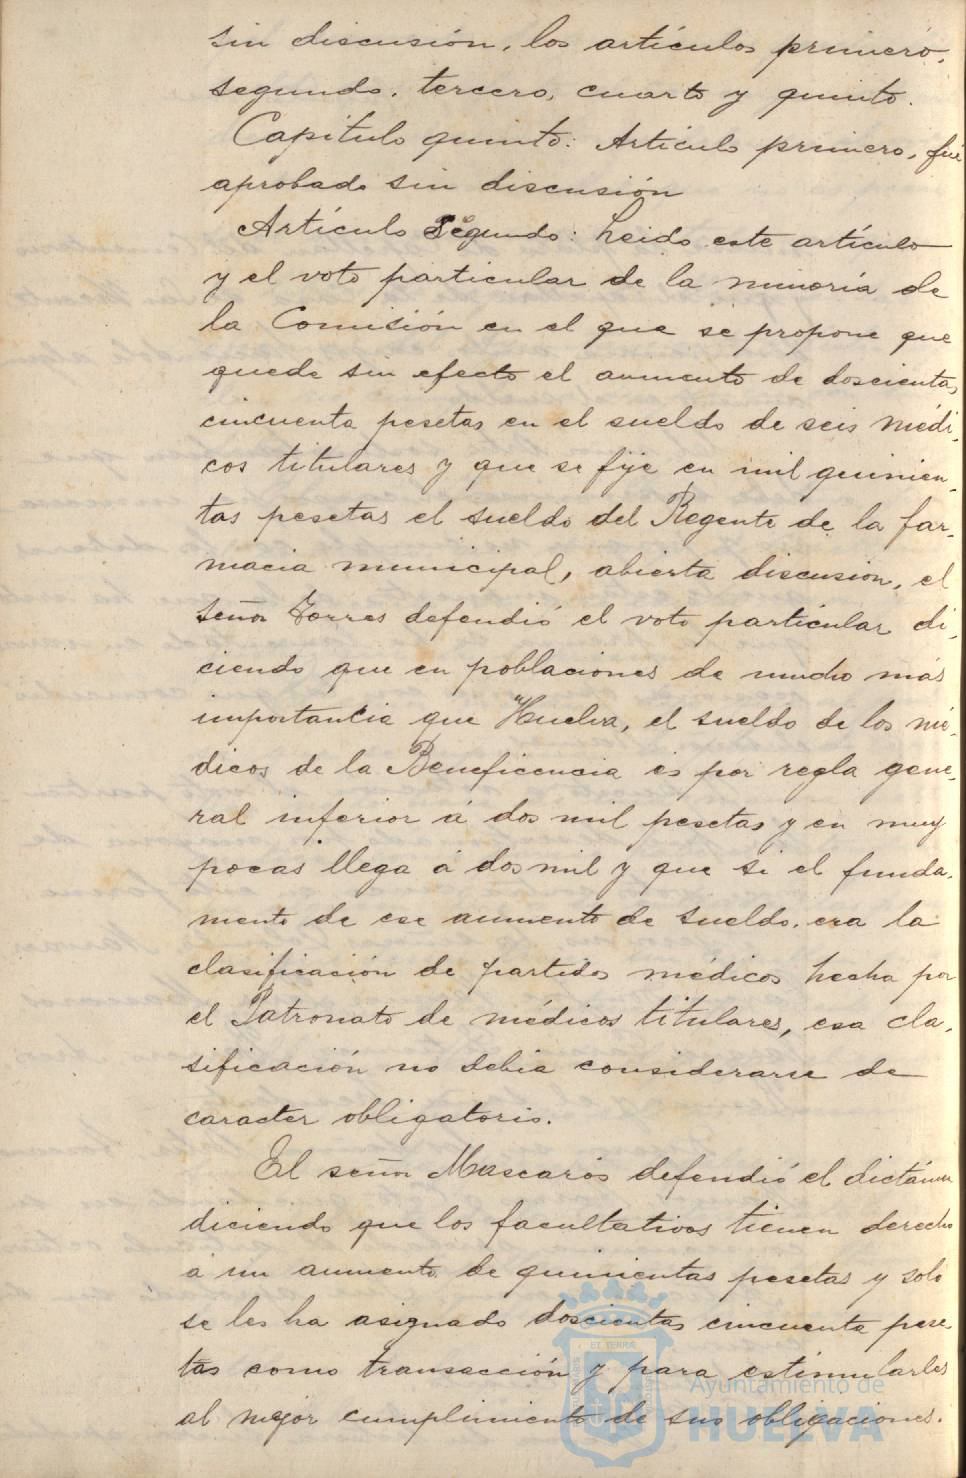 sin discusión, los artículos primero,
segundo, tercero, cuarto y quinto.
Capítulo quinto: Artículo primero, fué
aprobado sin discusión
Artículo segundo: Leido este artículo
y el voto particular de la minoría de
la Comisión en el que se propone que
quede sin efecto el aumento de doscientas
cincuenta pesetas en el sueldo de seis médi-
cos titulares y que se fije en mil quinien-
tas pesetas el sueldo del Regente de la far-
macia municipal, abierta discusion, el
señor Torres defendió el voto particular di-
ciendo que en poblaciones de mucho más
importancia que Huelva, el sueldo de los mé-
dicos de la Beneficencia es por regla gene-
ral inferior á dos mil pesetas y en muy
pocas llega á dos mil y que si el funda-
mento de ese aumento de sueldo, era la
clasificación de partidos médicos hecha por
el Patronato de médicos titulares, esa cla-
sificación no debia considerarse de
caracter obligatorio.
El señor Mascarós defendió el dictámen
diciendo que los facultativos tienen derecho
á un aumento de quinientas pesetas y solo
se les ha asignado doscientas cincuenta pese-
tas como transacción y para estimularles
al mejor cumplimiento de sus obligaciones.
Ayuntamiento de
HUELVA